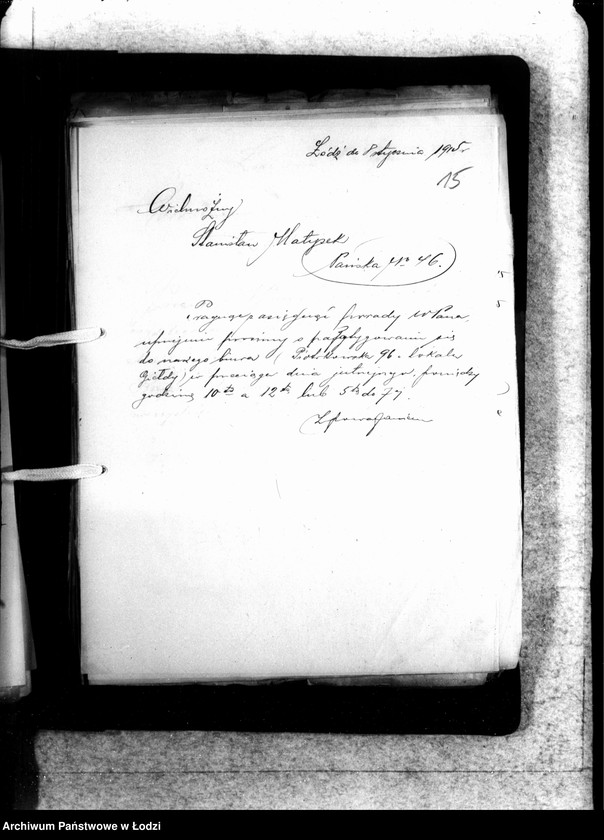 Łódź dn 8 stycznia 1915 r.
15
Wielmożny
Stanisław Matysek
Pańska No 46.
Pragnąc zasięgnąć porady WPana,
uprzejmie prosimy o pofatygowanie się
do naszego biura (Piotrkowska 96. lokal
Giełdy) w przeciągu dnia jutrzejszego, pomiędzy
godziną 10tą a 12tą lub 5tą do 7ej.
Z poważaniem
Archiwum Państwowe w Łodzi